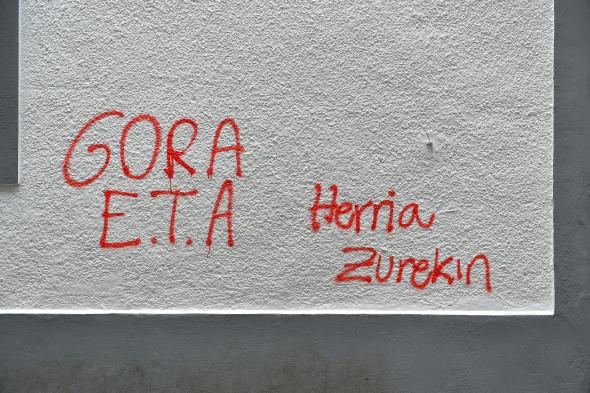 GORA
E.T.A
Herria
Zurekin